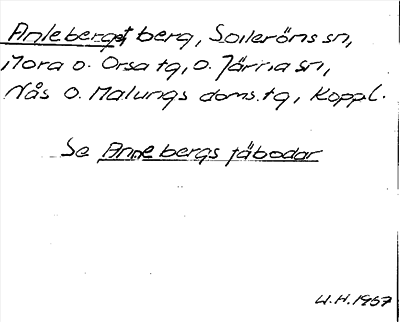 Anleberget berg, Solleröns sn,
Mora o. Orsa tg, o. Järna sn,
Nås o. Malungs doms.tg, Koppl.
Se Annebergs fäbodar
W.H.1957